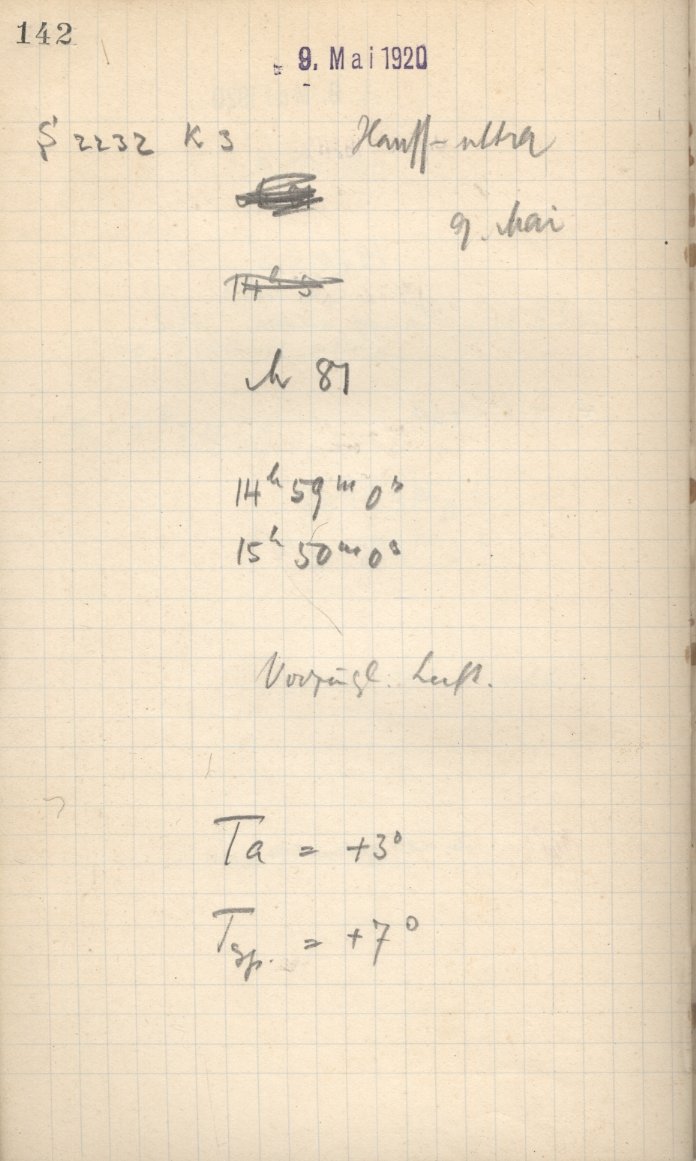 142
- 9. Mai 1920
S 2232 K 3 Hauff-ultra
9. Mai
14h 5
M 87
14h 59m 0s
15h 50m 0s
Vorzügl. Luft.
Ta = +3°
Tsp. = +7°